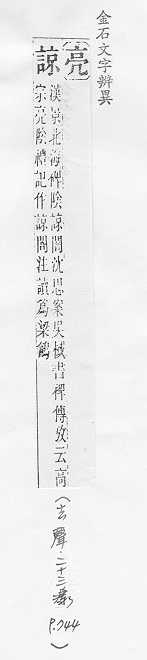 金石文字辨異
亮
諒
漢景北海碑陰諒闇沈思案吳棫書裨傳攷云高
宗亮陰禮記作諒闇注讀為梁鵪
(去聲.二十三漾 P.744)